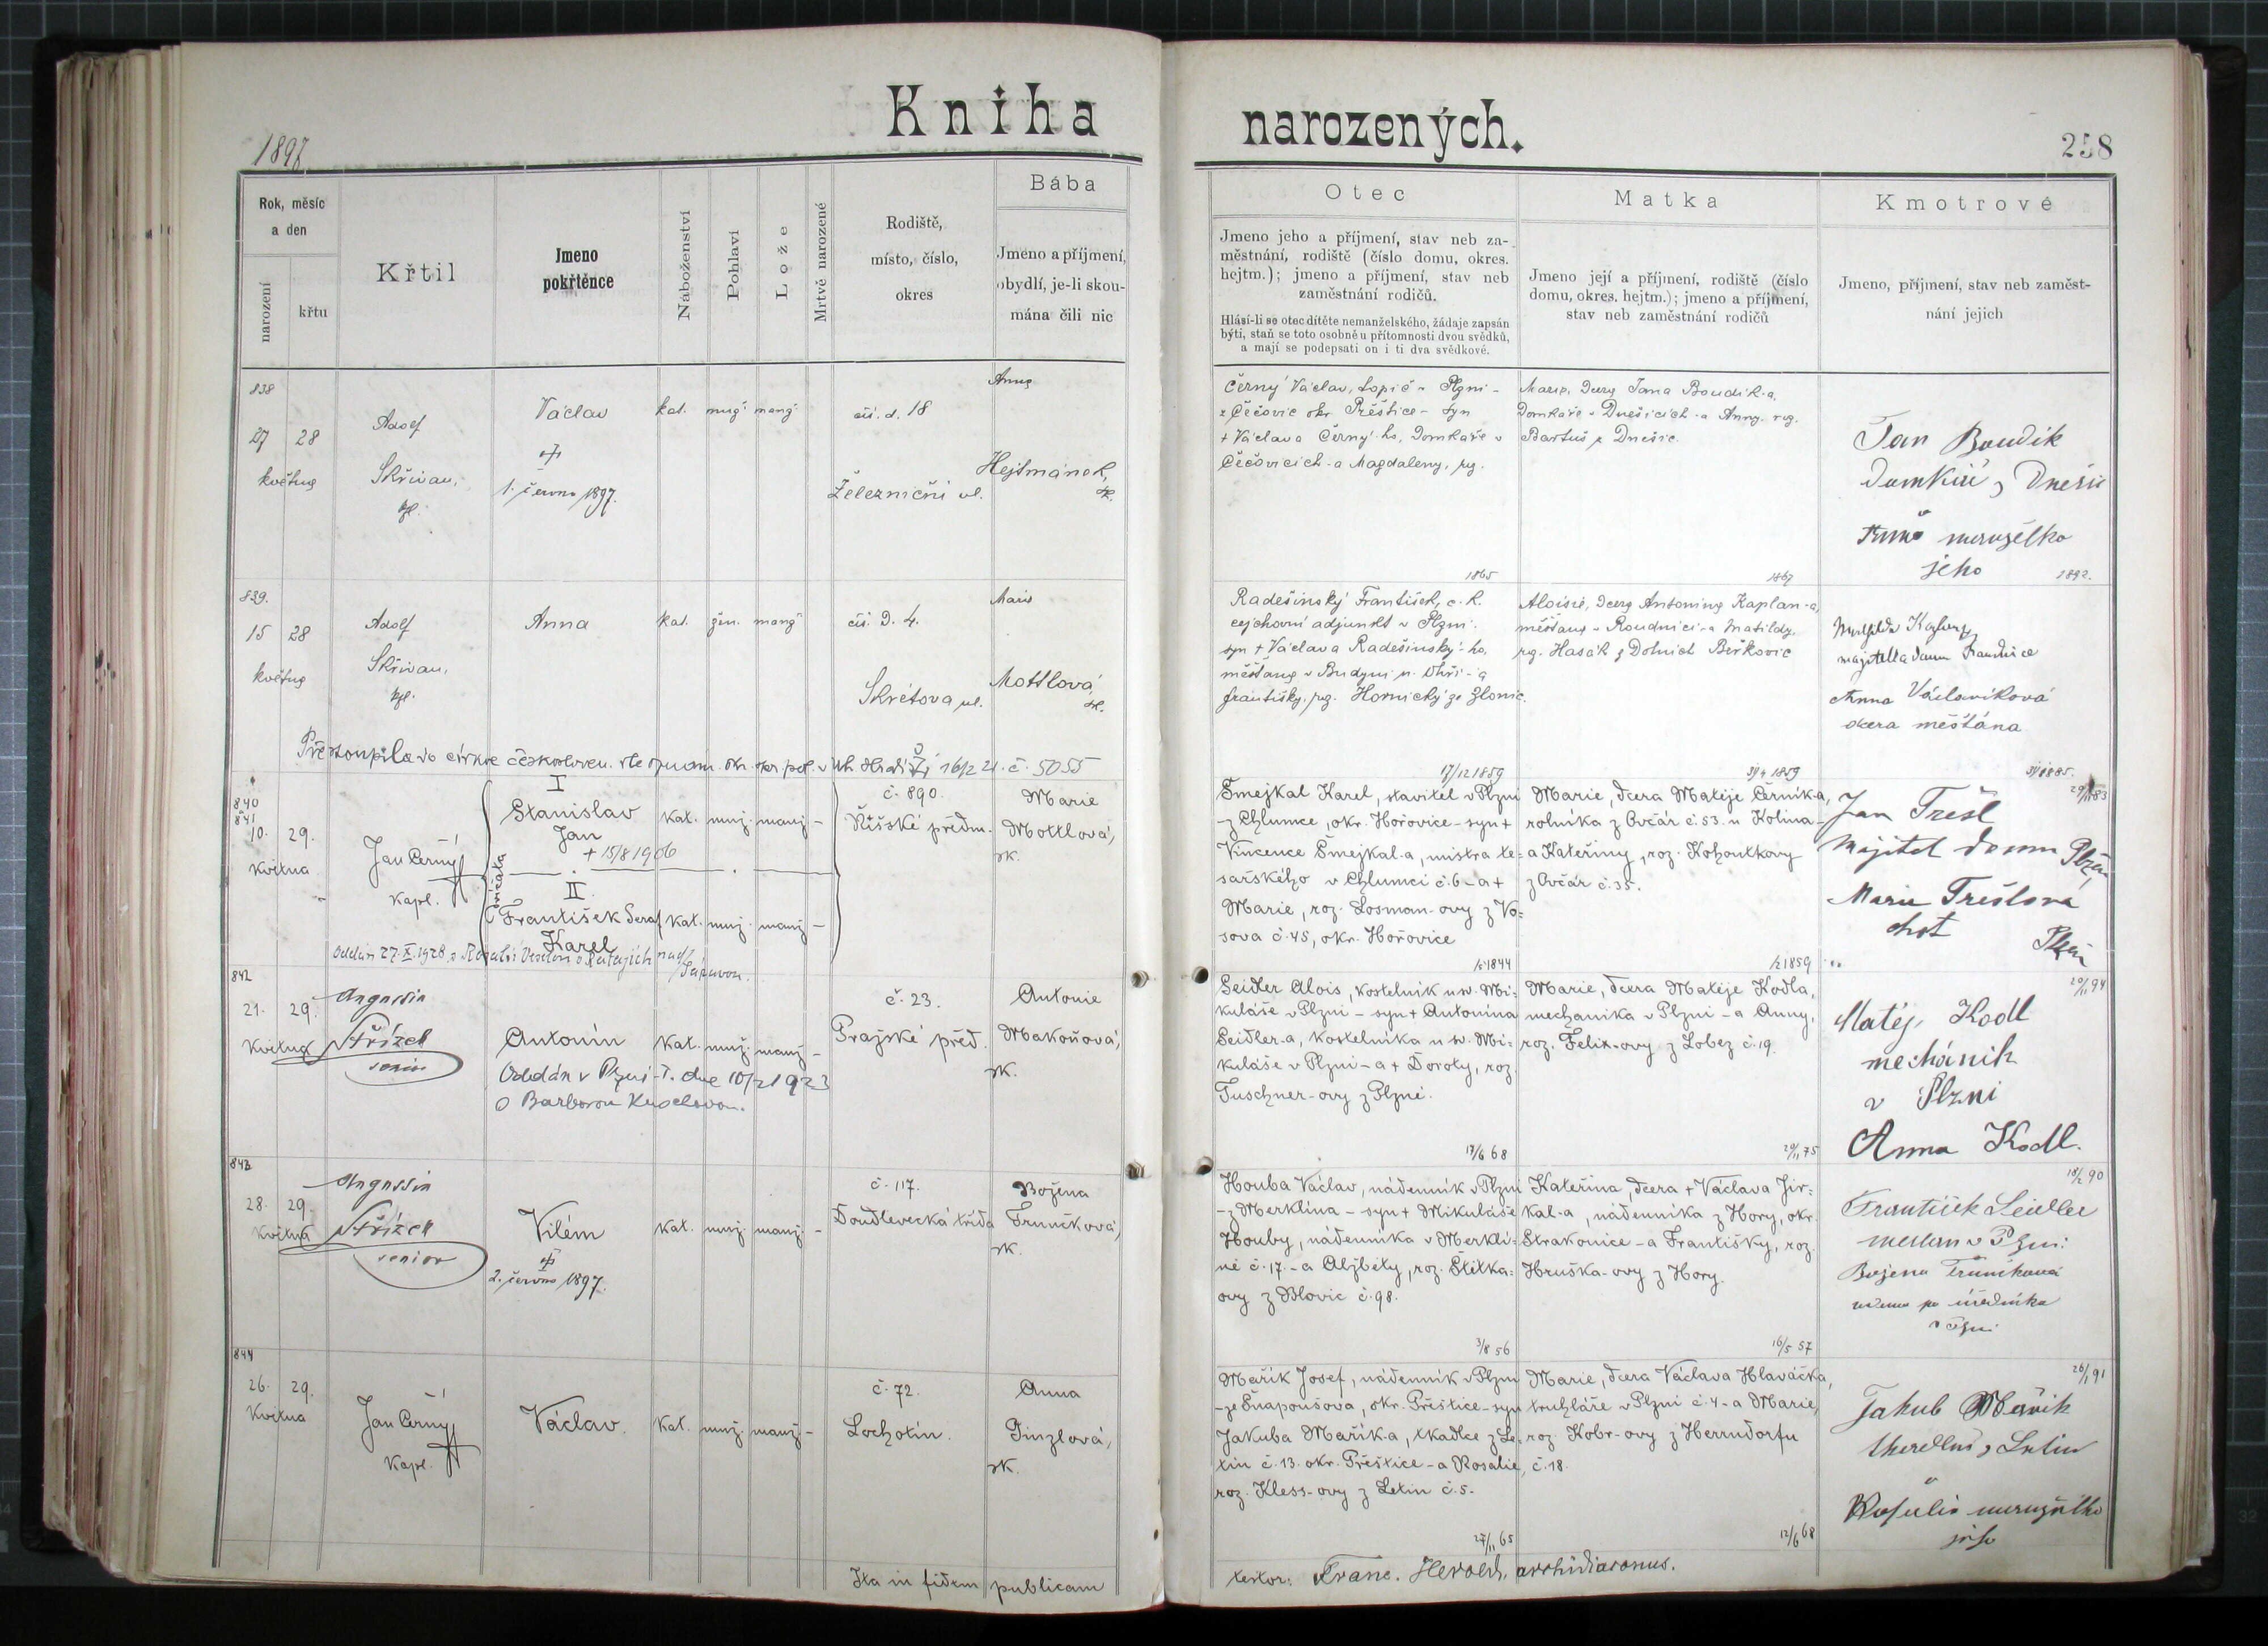 Kniha
narozených.
1897
258
Rok, měsíc
a den
narození
křtu
Křtil
Jmeno
pokřtěnce
Náboženství
Pohlaví
Lože
Mrtvě narozené
Rodiště,
místo, číslo,
okres
Bába
Jmeno a příjmení,
obydlí, je-li skou-
mána čili nic
Otec
Jmeno jeho a příjmení, stav neb za-
městnání, rodiště (číslo domu, okres.
hejtm.); jmeno a příjmení, stav neb
zaměstnání rodičů.
Hlásí-li se otec dítěte nemanželského, žádaje zapsán
býti, staň se toto osobně u přítomnosti dvou svědků,
a mají se podepsati on i ti dva svědkové.
Matka
Jmeno její a příjmení, rodiště (číslo
domu, okres. hejtm.); jmeno a příjmení,
stav neb zaměstnání rodičů
Kmotrové
Jmeno, příjmení, stav neb zaměst-
nání jejich
838
27 28
května
Adolf
Skřivan,
kpl.
Václav
1. června 1897.
kat.
čís. d. 18
Železniční ul.
Anna
Hejtmánek,
Černý Václav, topič v Plzni -
z Čečovic okr. Přeštice - syn
+ Václava Černý-ho, domkáře v
Čečovicích - a Magdaleny, roz.
1865
Marie, dcera Jana Boudík-a,
domkáře v Dnešicích - a Anny, roz.
Bartuš z Dnešic.
1867
Jan Boudík
domkář z Dnešic
manželka
jeho
1892.
839.
15 28
května
Adolf
Skřivan,
kpl.
Anna
kat. žen.
čís. D. 4.
Skrétova ul.
Marie
Mottlová
Radešínský František, c. k.
cejchovní adjunkt v Plzni -
syn + Václava Radešínský-ho,
měšťana v Budyni n. Ohří - a
Františky, roz. Hornický ze Zlonic.
17/12 1859
Aloisie, dcera Antonína Kaplan-a,
měšťana v Roudnici - a Matildy,
roz. Hasák z Dolních Beřkovic
1859
majitelka domu Roudnice
Anna Václavíková
dcera měšťána
1885.
Přestoupila do církve českosloven. dle oznám. okr. spr. pol. v Uh. Hradišti 16/2 21. č. 5055
840
841
10. 29.
Května
Jan Černý
kapl.
I
Stanislav
Jan
+ 15/8 1906
Dvojčata
II
František Seraf
Karel
kat. muž. manž. -
kat. muž. manž. -
č. 890.
Říšské předm.
Marie
Mottlová,
zk.
Šmejkal Karel, stavitel v Plzni
- z Chlumce, okr. Hořovice - syn +
Vincence Šmejkal-a, mistra te=
sařského v Chlumci č. 6 - a +
Marie, roz. Losman-ovy z Vo=
sova č. 45, okr. Hořovice
1844
Marie, dcera Matěje Černík-a,
rolníka z Ovčár č. 53. u Kolína -
a Kateřiny, roz. Kohoutkovy
z Ovčár č. 35.
1859
Jan Trešl
Majitel domu Plzeň
Marie Trešlová
chot
Plzeň
842
21. 29.
Května
Augustin
Střízek
senior
Antonín
Oddán v Plzni - I. dne 10/2 1923
kat. muž. manž. -
č. 23.
Pražské před.
Antonie
Makoňová,
zk.
Seidler Alois, kostelník u sv. Mi=
kuláše v Plzni - syn + Antonína
Seidler-a, kostelníka u sv. Mi=
kuláše v Plzni - a + Doroty, roz.
Tuschner-ovy z Plzně.
17/6 68
Marie, dcera Matěje Kodla,
mechanika v Plzni - a Anny,
roz. Felix-ovy z Lobez č. 19.
29/11 75
20/11 94
Matěj Kodl
mechánik
v Plzni
Anna Kodl.
843
28. 29.
Května
Augustin
Střízek
senior
Vilém
2. června 1897.
kat. muž. manž. -
č. 117.
Doudlevecká třída
Božena
Truníčková,
zk.
Houba Václav, nádenník v Plzni
- z Merklína - syn + Mikuláše
Houby, nádenníka v Merklí=
ně č. 17. - a Alžběty, roz. Štětka=
ovy z Blovic č. 98.
3/8 56
Kateřina, dcera + Václava Jir=
kal-a, nádenníka z Hory, okr.
Strakonice - a Františky, roz.
Hruška-ovy z Hory.
16/5 57
18/2 90
František Seidler
v Plzni
Božena Truníková
844
26. 29.
Května
Jan Černý
kapl.
Václav.
kat. muž. manž. -
č. 72.
Lochotín.
Anna
Ginzlová,
zk.
Mařík Josef, nádenník v Plzni
- ze Šnapoušova, okr. Přeštice - syn
Jakuba Mařík-a, tkadlce z Le=
tin č. 13. okr. Přeštice - a Rosalie,
roz. Kless-ovy z Letin č. 5.
27/11 65
Marie, dcera Václava Hlaváčka,
truhláře v Plzni č. 4 - a Marie,
roz. Kobr-ovy z Herrndorfu
č. 18.
12/6 68
26/1 91
Jakub Mařík
Rosalie manželka
jeho
Ita in fidem publicam
testor: Franc. Herold, archidiaconus.